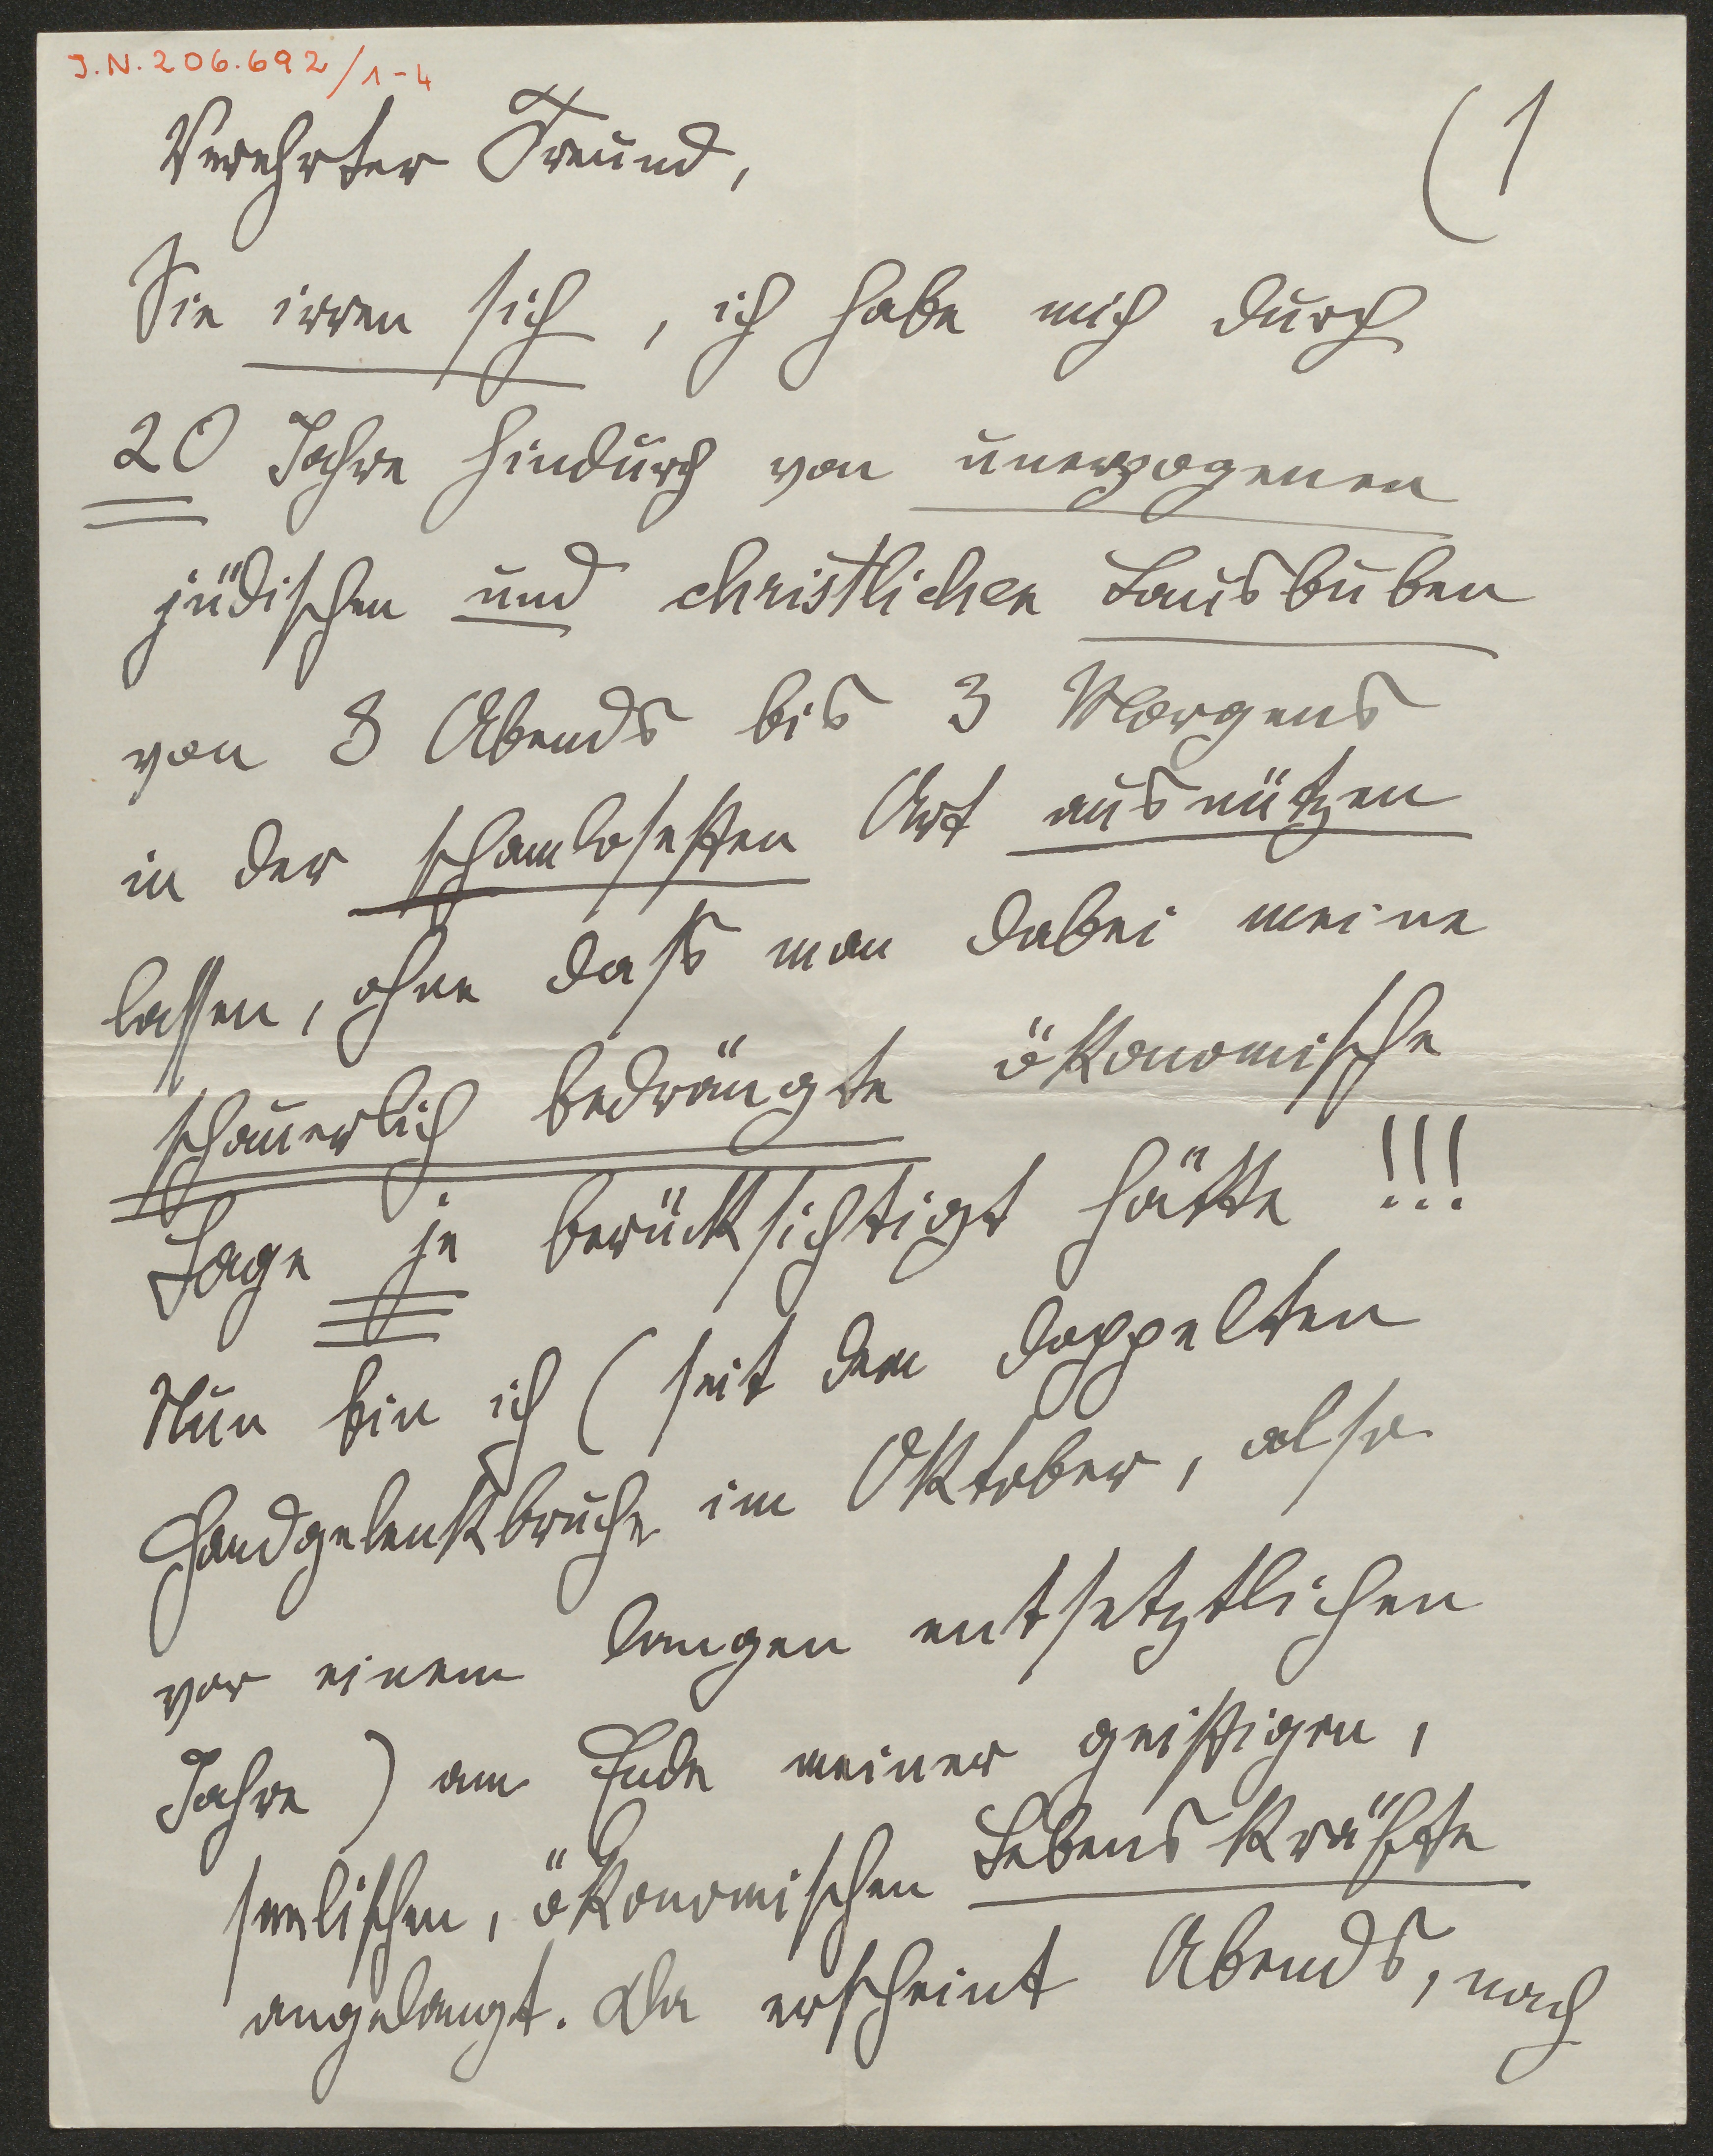 J.N. 206.692/1-4
(1
Verehrter Freund,
Sie irren sich, ich habe mich durch
20 Jahre hindurch von unerzogenen
jüdischen und christlichen Lausbuben
von 8 Abends bis 3 Morgens
in der schamlosesten Art ausnützen
lassen, ohne dass man dabei meine
schauerlich bedrängte ökonomische
Lage je berücksichtigt hätte !!!
Nun bin ich (seit dem doppelten
Handgelenkbruche im Oktober, also
vor einem langen entsetztlichen
Jahre) am Ende meiner geistigen,
seelischen, ökonomischen Lebenskräfte
angelangt. Da erscheint Abends, nach